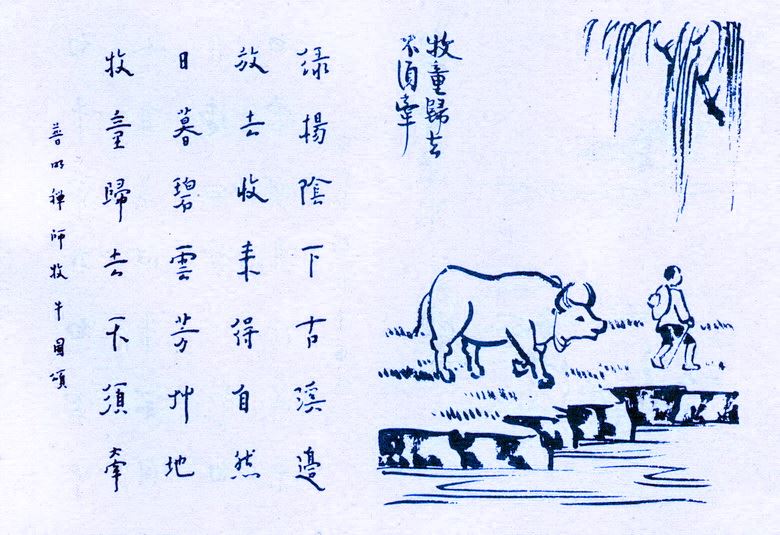 牧童歸去
不須牽
綠楊陰下古溪邊
放去收來得自然
日暮碧雲芳艸地
牧童歸去不須牽
普明禪師牧牛圖頌